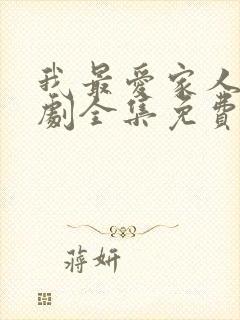 我最愛家人
劇全集免費
蔣妍